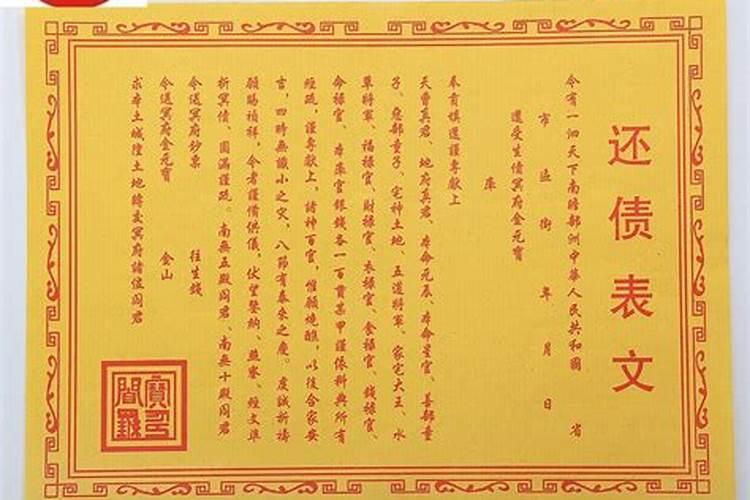 还债表文
今有一泗天下南瞻部洲中華人民共和國 省
市 區 街 年 月 日
還受生債冥府金元寶
庫
奉育填還謹專献上
天曹真君、地府真君、本命元辰、本命星官、善部童
子、惡部童子、宅神土地、五道將軍、家宅大王、水
草將軍、福祿官、財祿官、衣祿官、食祿官、錢祿官、
命祿官、本庫官銀錢各一百貫某甲謹依科典所有
經疏，謹專献上，諸神百官，惟願燒醮，以後合家安
吉，四時無讖小之灾，八節有泰來之慶。虔誠祈禱
願賜禎祥，今者謹備供儀，伏望鑒納、照察、經文準
折冥債、圓滿謹疏。南無五殿阎君、南無十殿阎君
令送冥府鈔票 往生錢
令送冥府金元寶 金山
求本土城隍土地轉交冥府諸位阎君